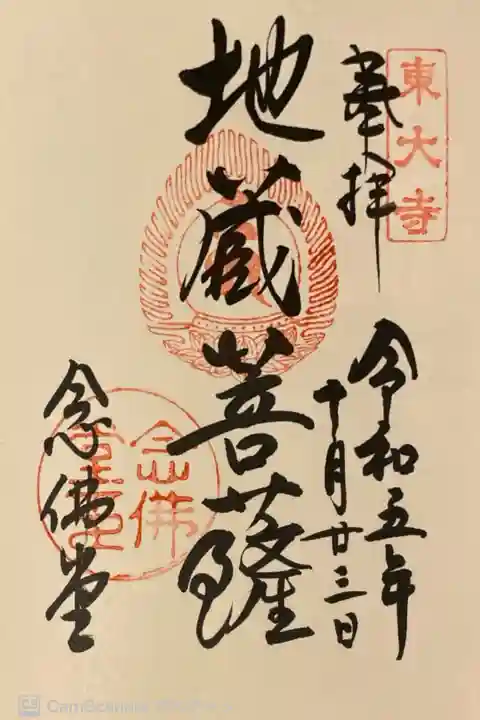 東大寺
奉拝
令和五年
十月廿三日
地蔵菩薩
念佛堂
念佛
CamScanner